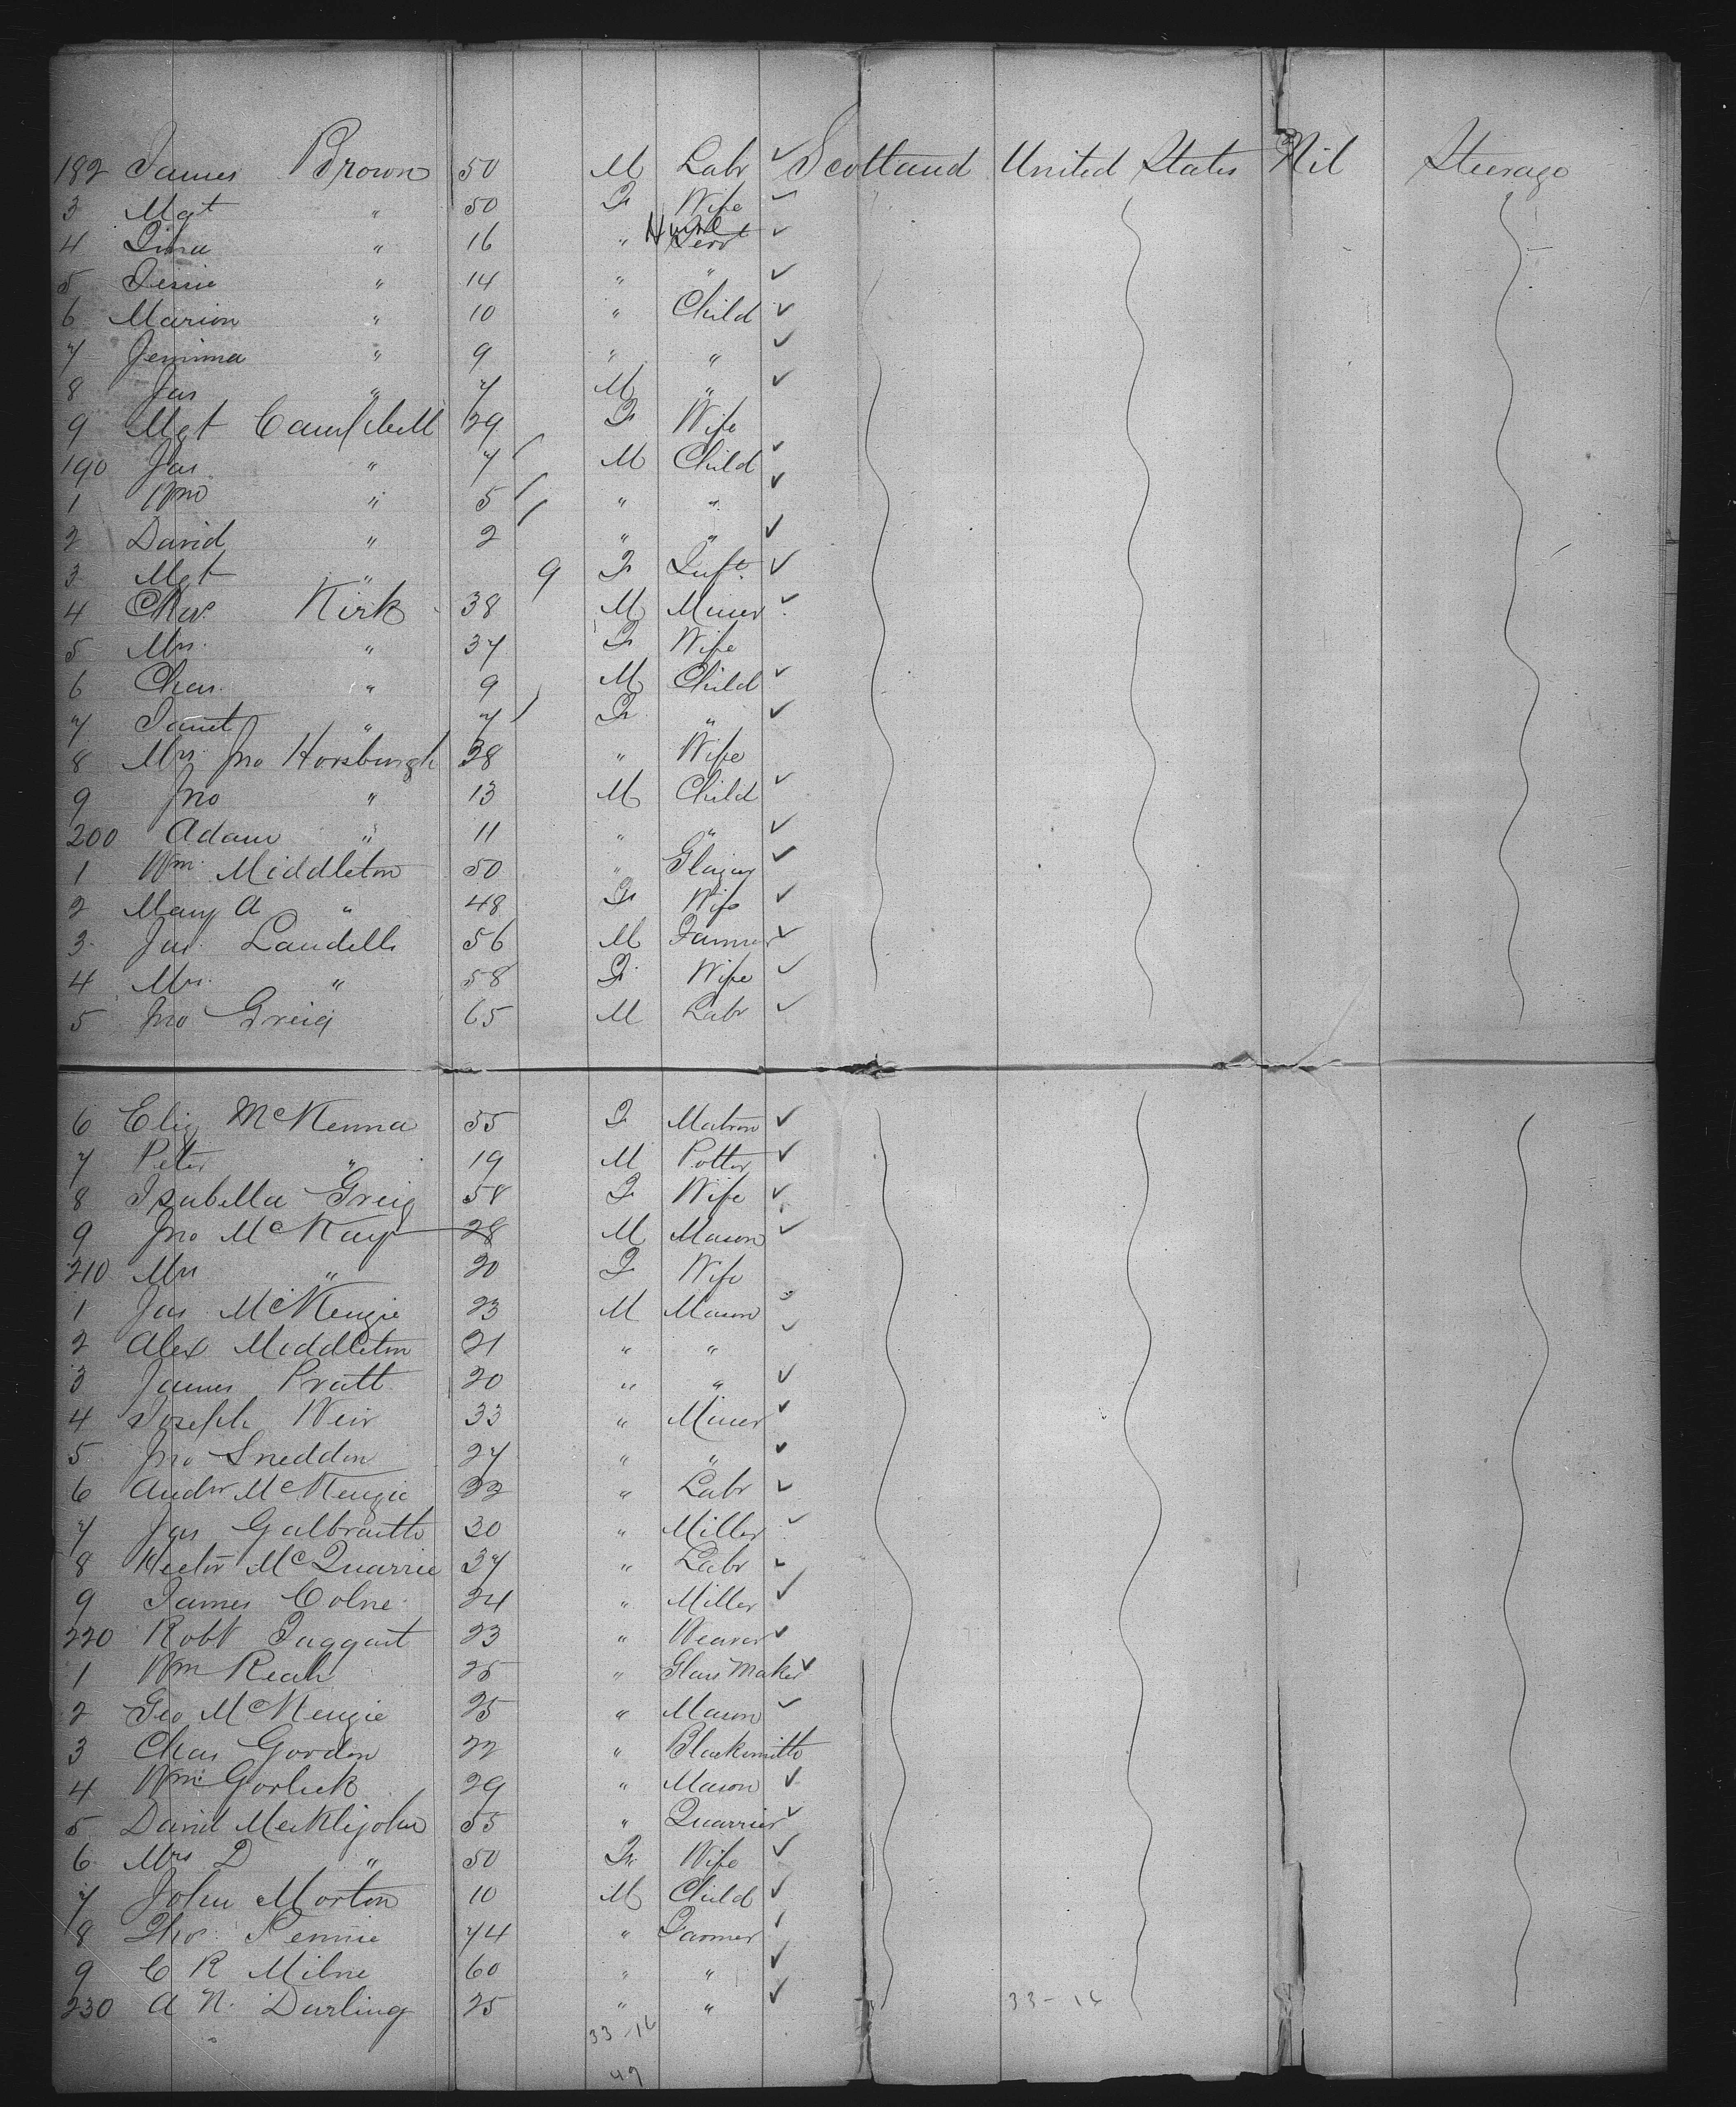 182 James Brown 50 M Labr ✓ Scotland United States Nil Steerage
3 Mgt " 50 F Wife ✓
4 Lina " 16 " Nurse Servt ✓
5 Jessie " 14 " " ✓
6 Marion " 10 " Child ✓
7 Jemima " 9 " " ✓
8 Jas " 7 M " ✓
9 Mgt Campbell 29 F Wife
190 Jas " 7 M Child ✓
1 Wm " 5 " " ✓
2 David " 2 " " ✓
3 Mgt " 9 F Inft ✓
4 Chas Kirk 38 M Miner ✓
5 Mrs. " 37 F Wife
6 Chas. " 9 M Child ✓
7 Janet " 7 F " ✓
8 Mrs Jno Horsburgh 38 " Wife
9 Jno " 13 M Child ✓
200 Adam " 11 " " ✓
1 Wm Middleton 50 " ✓
2 Mary A " 48 F Wife ✓
3 Jas. Landells 56 M Farmer ✓
4 Mrs. " 58 F Wife ✓
5 Jno Greig 65 M Labr ✓
6 Eliz McKenna 55 F Matron ✓
7 Peter " 19 M Potter ✓
8 Isabella Greig 58 F Wife ✓
9 Jno McKay 28 M Mason ✓
210 Mrs " 20 F Wife
1 Jas McKenzie 23 M Mason
2 Alex Middleton 21 " " ✓
3 James Pratt 20 " " ✓
4 Joseph Weir 33 " Miner ✓
5 Jno Sneddon 27 " " ✓
6 Andw McKenzie 22 " Labr ✓
7 Jas Galbraith 30 " Miller ✓
8 Hector McQuarrie 37 " Labr ✓
9 James Colne 24 " Miller ✓
220 Robt Taggart 23 " Weaver ✓
1 Wm Reah 25 " Glass Maker ✓
2 Geo McKenzie 25 " Mason ✓
3 Chas Gordon 22 " Blacksmith
4 Wm Gorlick 29 " Mason ✓
5 David Meiklijohn 55 " Quarrier ✓
6 Mrs D " 50 F Wife ✓
7 John Morton 10 M Child ✓
8 Thos. Rennie 74 " Farmer ✓
9 C R Milne 60 " " ✓
230 A N. Darling 25 " " ✓
33-16 33-16
49